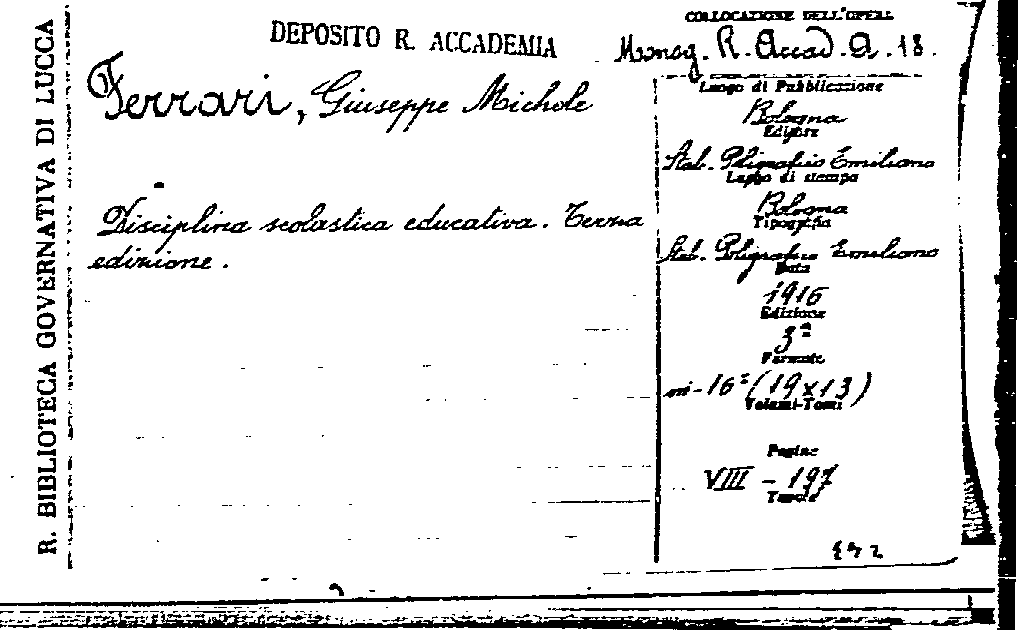 R. BIBLIOTECA GOVERNATIVA DI LUCCA
DEPOSITO R. ACCADEMIA
COLLOCAZIONE DELL'OPERA
R. Accad. A. 18.
Ferrari, Giuseppe Michele
Disciplina scolastica educativa. Terza
edizione.
Luogo di Pubblicazione
Bologna
Editore
Stab. Poligrafico Emiliano
Luogo di stampa
Bologna
Tipografia
Stab. Poligrafico Emiliano
Data
1916
Edizione
3ª
Formato
in-16º (19x13)
Volumi-Tomi
Pagine
VIII - 197
Tavole